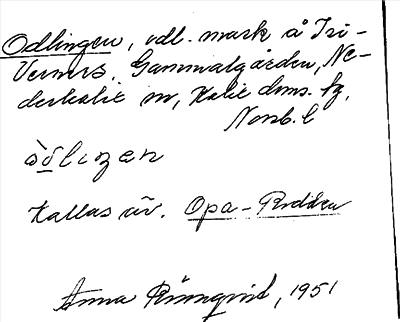 Odlingen, odl. mark å Tri-
Verners, Gammalgården, Ne-
derkalix m, Kalix dms. tg,
Norrb. l
kallas äv. Opa-Rudden
Anna Rönnqvist, 1951